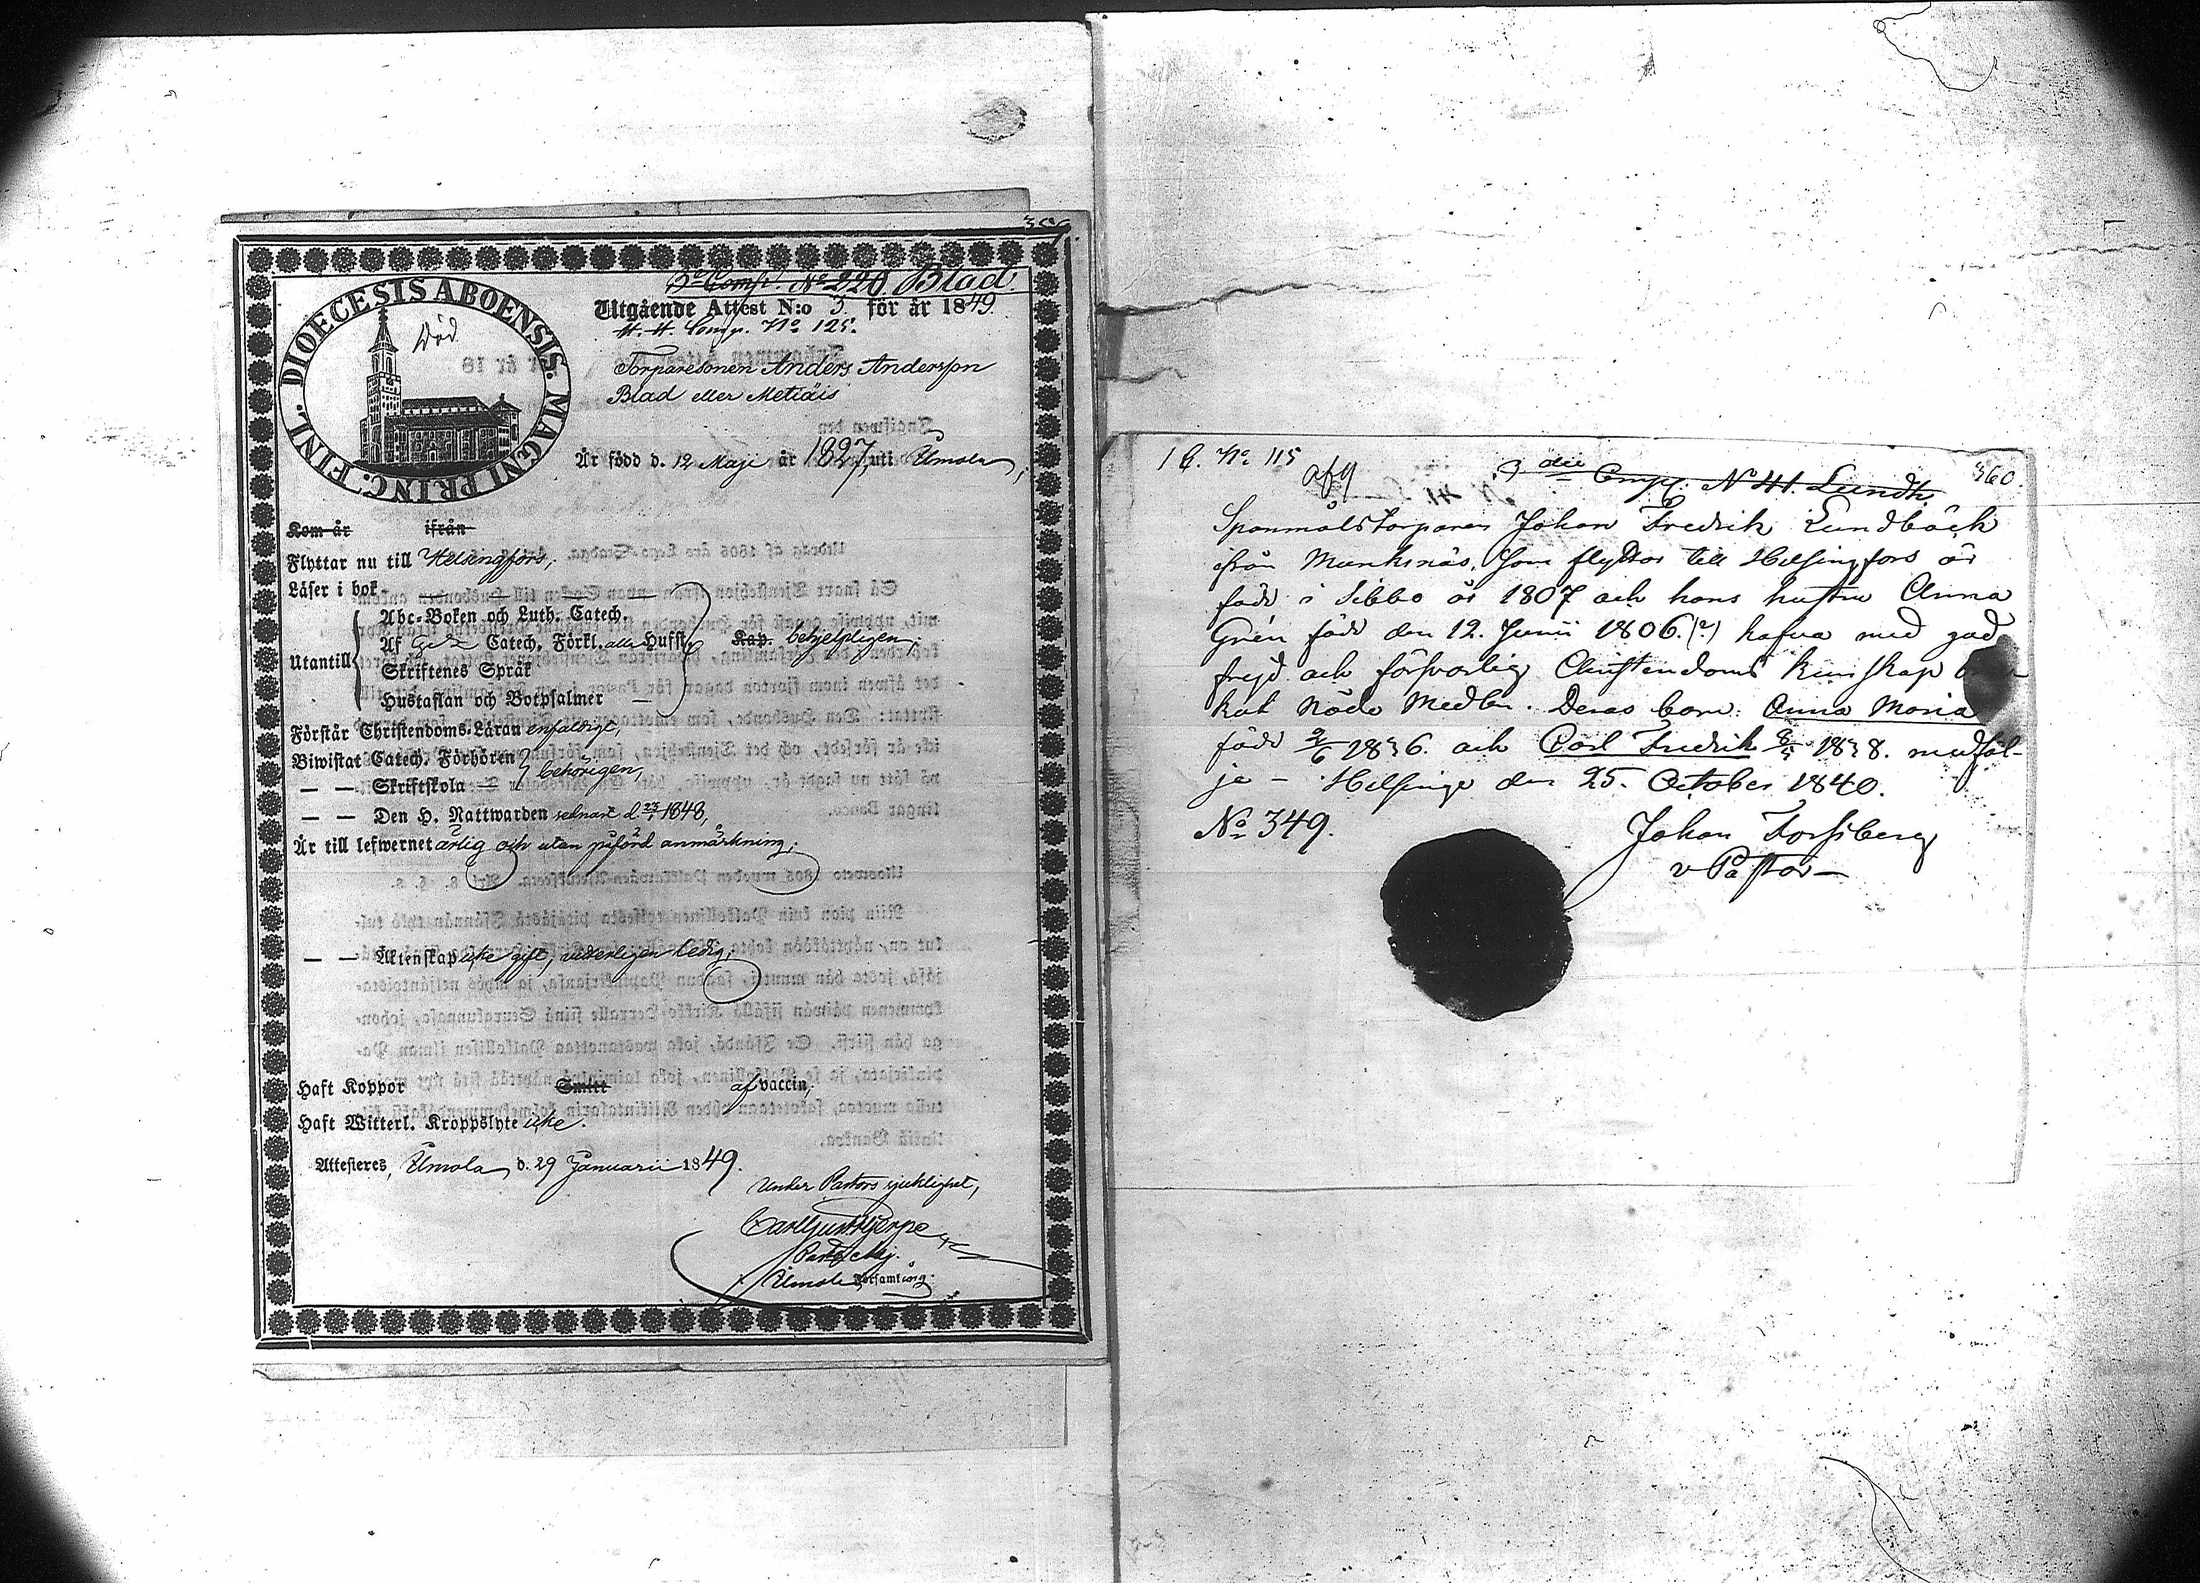 2:a Comp. No 220. Blad.
DIOECESIS ABOENSIS. MAGNI PRINC. FINL.
Död
Utgående Attest N:o 3. för år 1849.
H. H. Comp. No 125.
Torparesonen Anders Andersson
Blad eller Metiäis
Är född d. 12 Maji år 1827, uti Urmola,
Kom år ifrån
Flyttar nu till Helsingfors,
Läser i bok
Utantill
Abc-Boken och Luth. Catech.
Af Catech. Förkl. Hufst. Kap. behjelpligen;
Skriftenes Språk
Hustaflan och Botpsalmer —
Förstår Christendoms-Läran enfaldigt,
Biwistat Catech. Förhören behörigen,
— — Skriftskola —
— — Den H. Nattwarden sednast d. 1848,
Är till lefwernet ärlig och utan påförd anmärkning;
— — Äktenskap icke gift, vetterligen ledig;
Haft Koppor Smitt af vaccin;
Haft Witterl. Kroppslyte icke.
Attesteres, Urmola d. 29 Januarii 1849.
Under Pastors sjuklighet,
Carl Gust.
Församl:ing.
1 C. No 115
afg
Comp. N 41. Lundb.
360.
Spanmåls torparen Johan Fredrik Lundbäck
ifrån Munksnäs, som flyttar till Helsingfors är
född i Sibbo år 1807 och hans hustru Anna
Grén född den 12. Junii 1806.(?) hafva med god
frejd och försvarlig Christendoms kunskap
kat Nåde Medlen. Deras barn: Anna Maria
född 2/6 1836. och Carl Fredrik 1838. medföl-
je — Helsinge den 25. October 1840.
No 349.
Johan Forssberg
v Pastor —